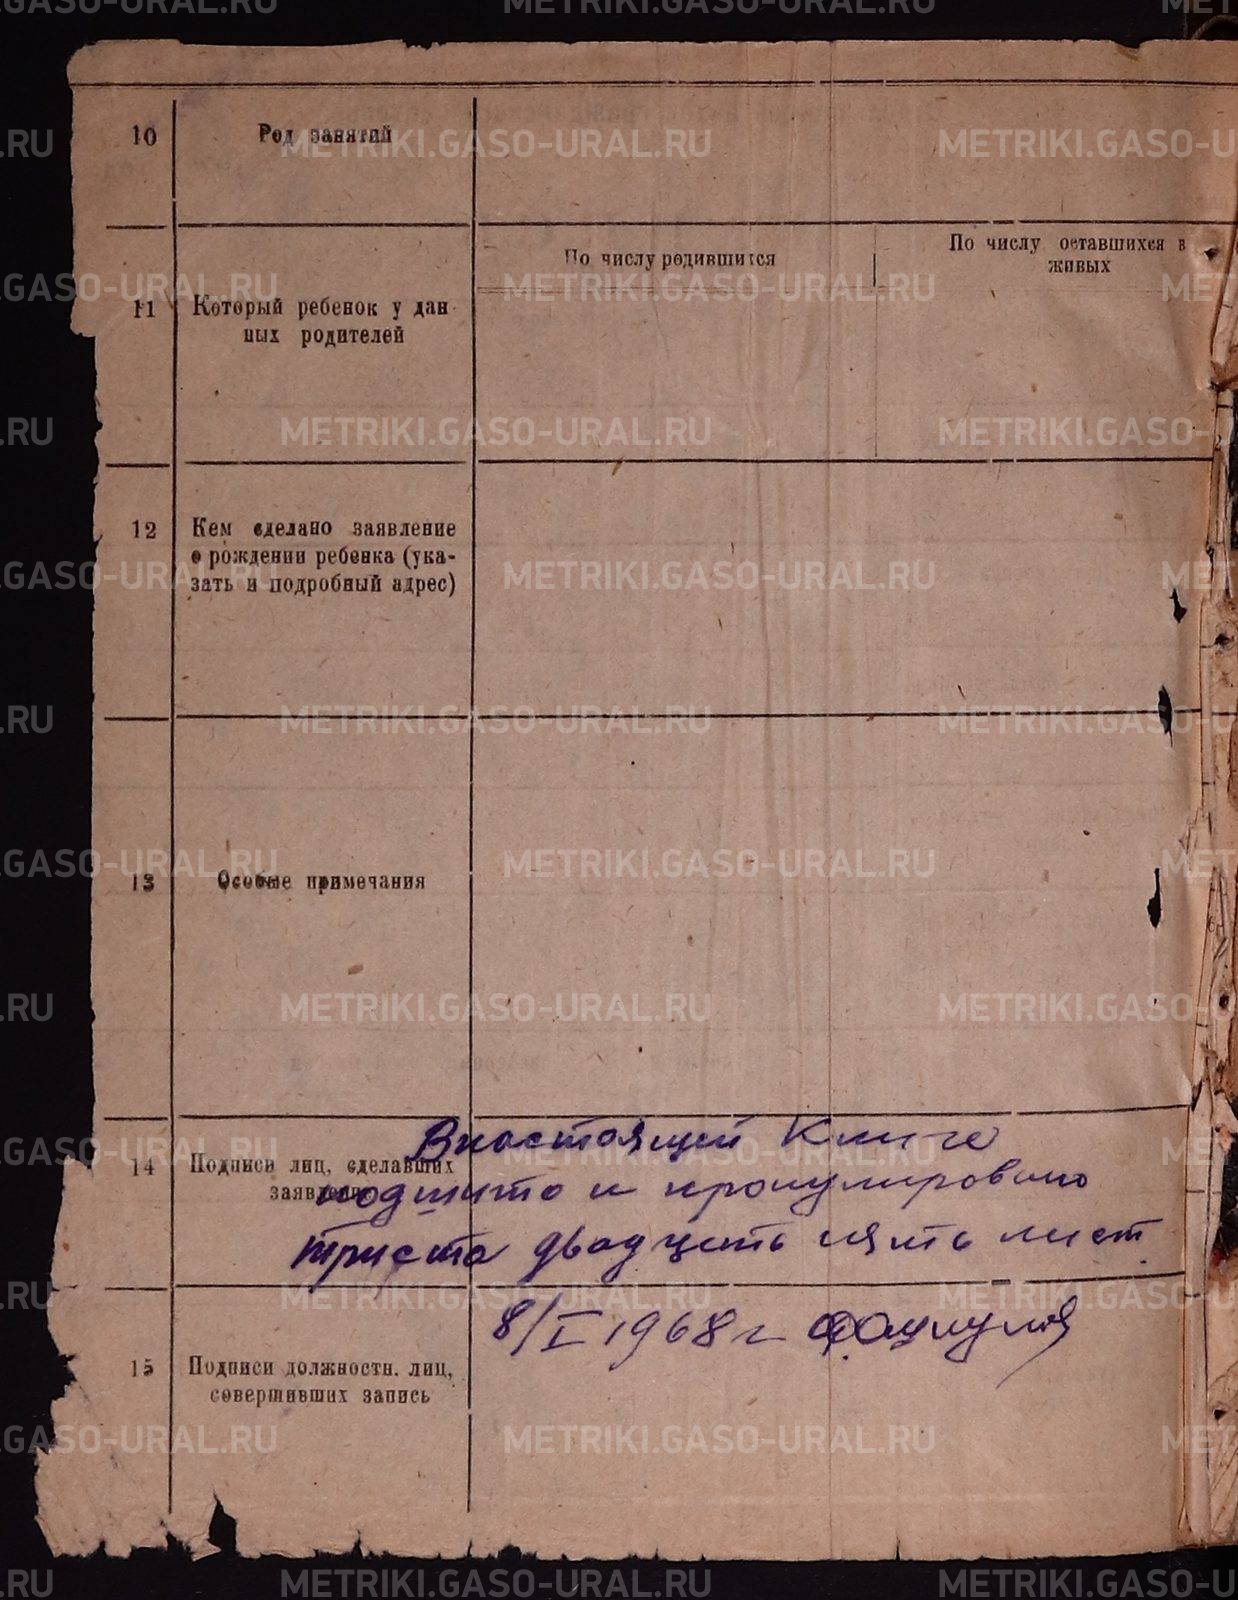 10 Род занятий
11 Который ребенок у дан-
ных родителей
По числу родившихся
По числу оставшихся в
живых
12 Кем сделано заявление
о рождении ребенка (ука-
зать и подробный адрес)
13 Особые примечания
14 Подписи лиц, сделавших
заявление
В настоящей Книге
подшито и пронумеровано
триста двадцать пять лист
8/I 1968 г
15 Подписи должностн. лиц,
совершивших запись
METRIKI.GASO-URAL.RU